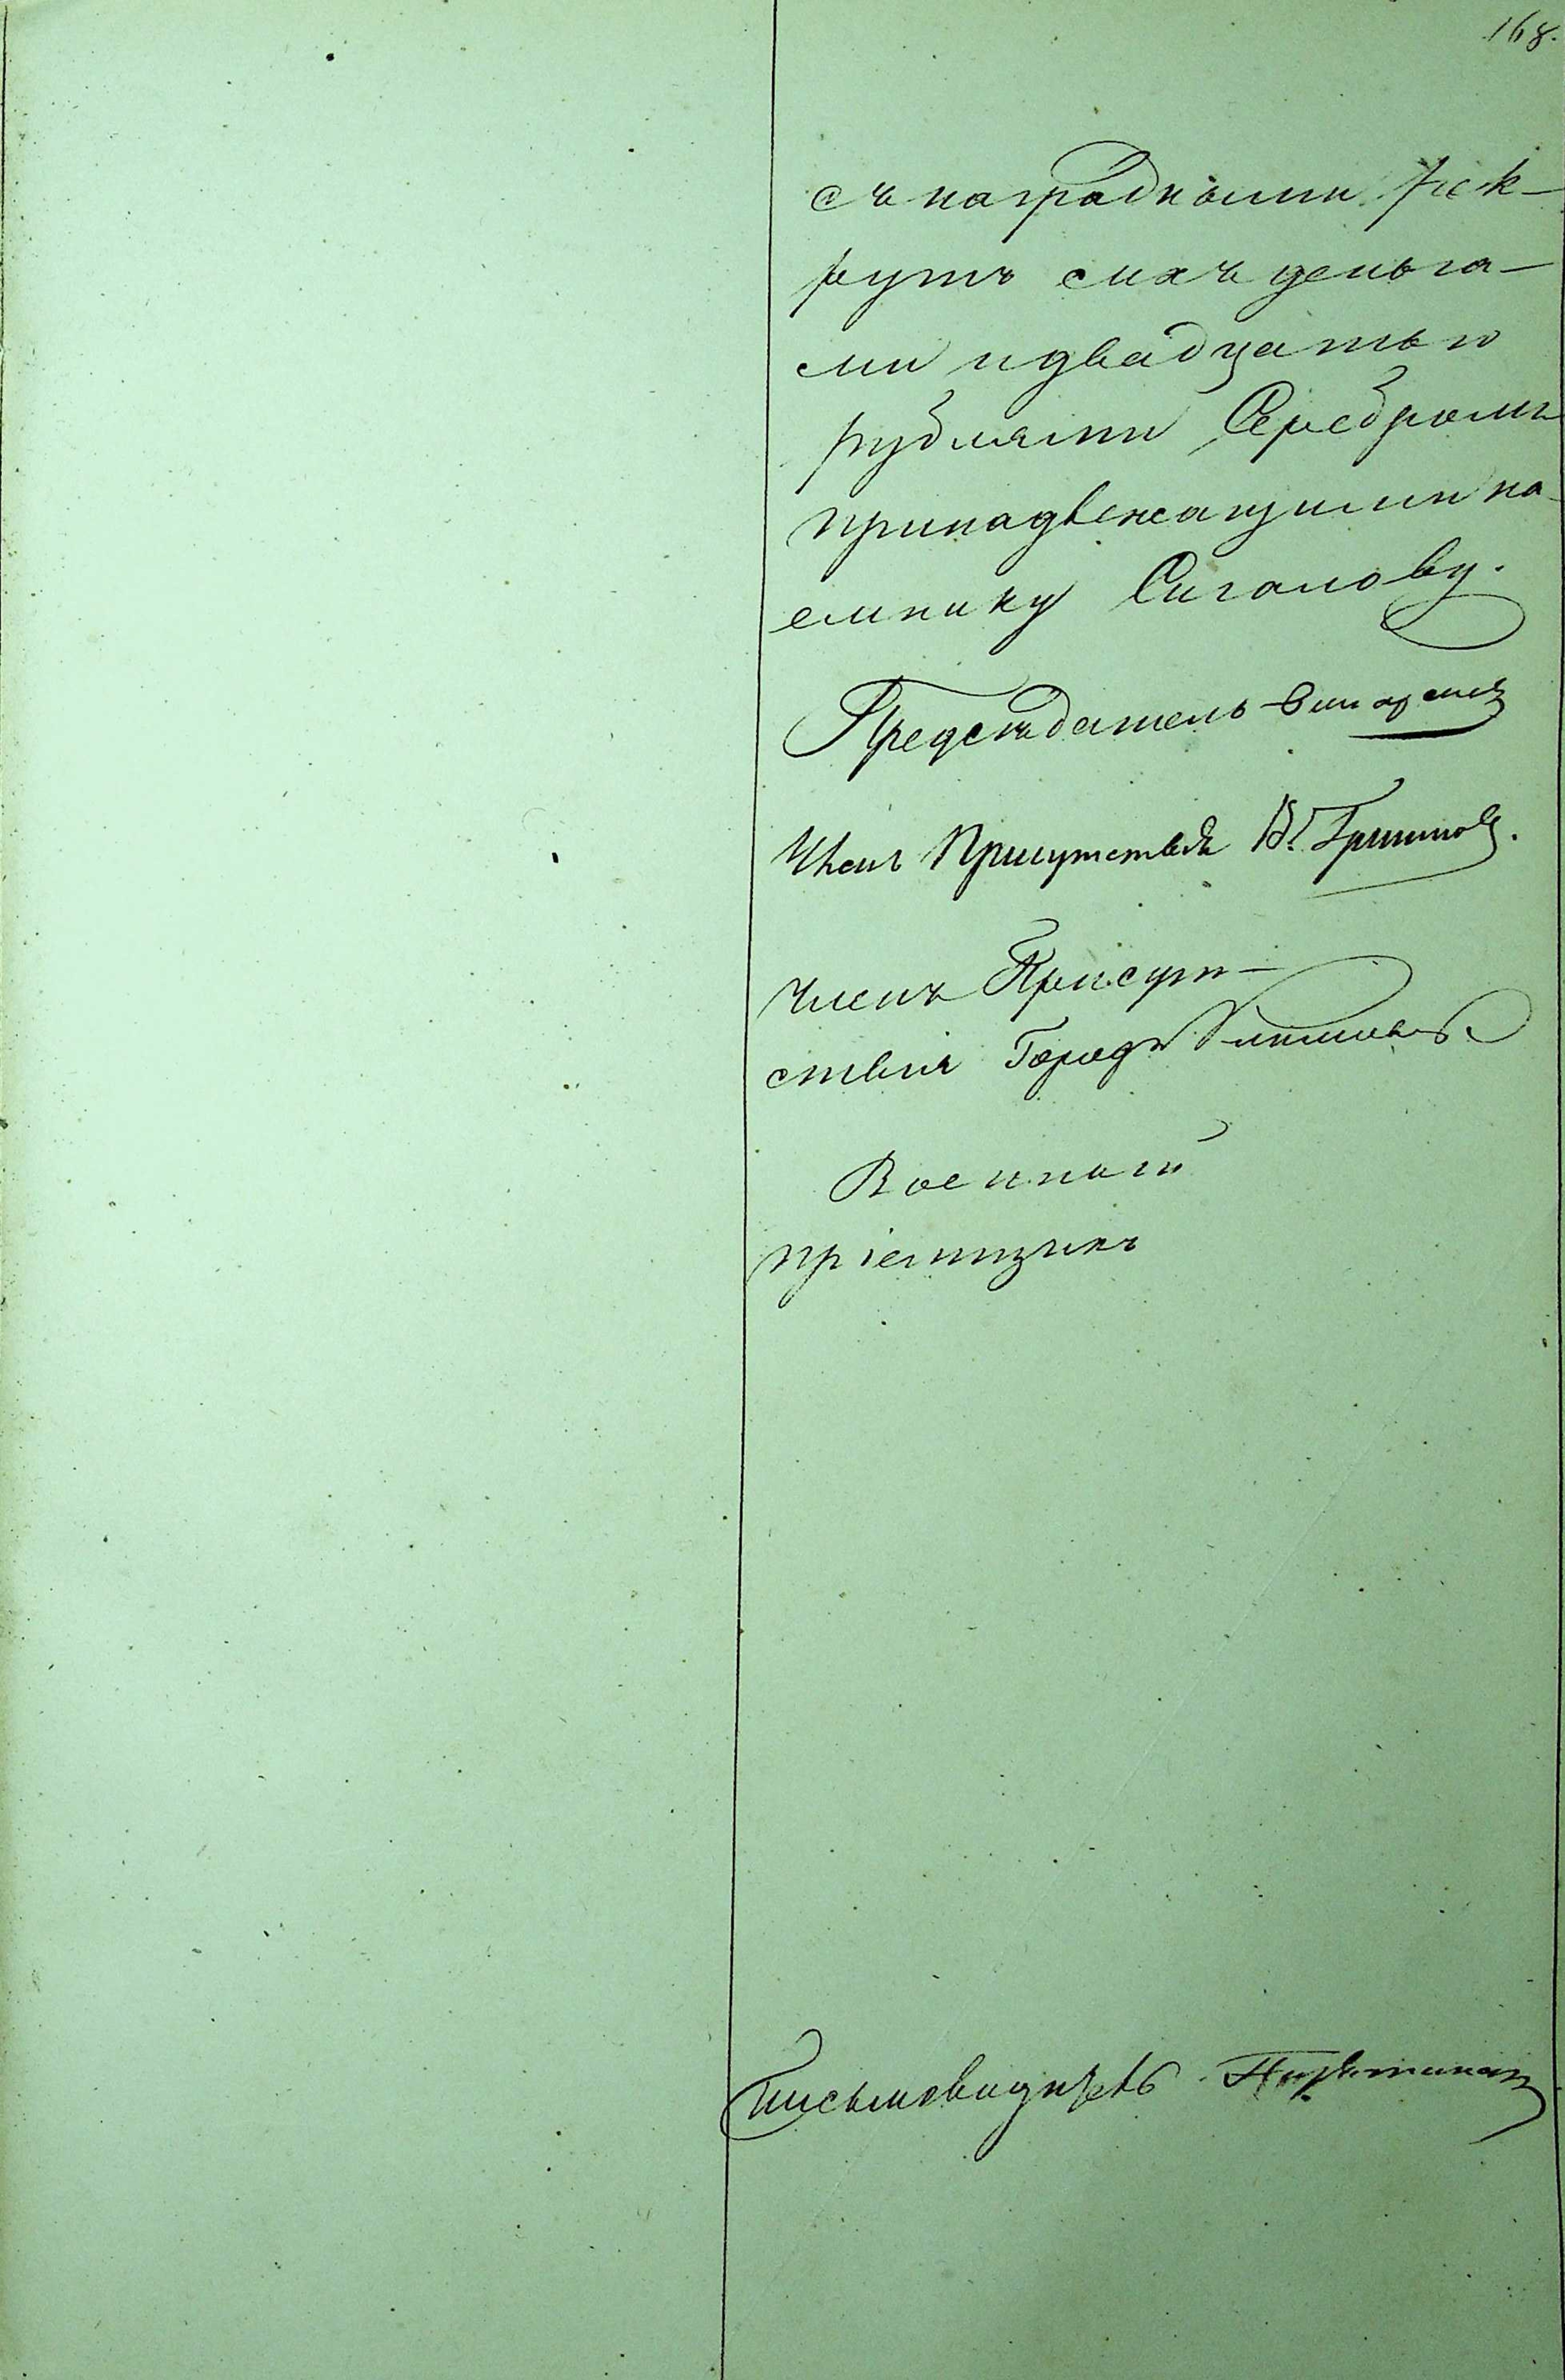 168.
съ наградными рек-
рутъ сихъ деньга-
ми и двадцатью
рублями Серебромъ
принадлежащими на-
емнику Сиганову.
Предсѣдатель
Членъ Присутствія В. Гриммъ.
Членъ Присут-
ствія Город
Военный
пріемщикъ
Письмоводитель